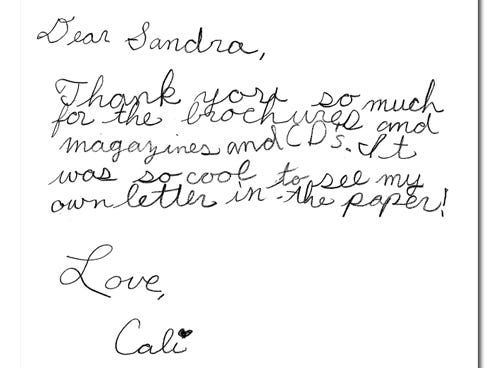 Dear Sandra,
Thank you so much
for the brochures and
magazines and CD's. It
was so cool to see my
own letter in the paper!
Love,
Cali